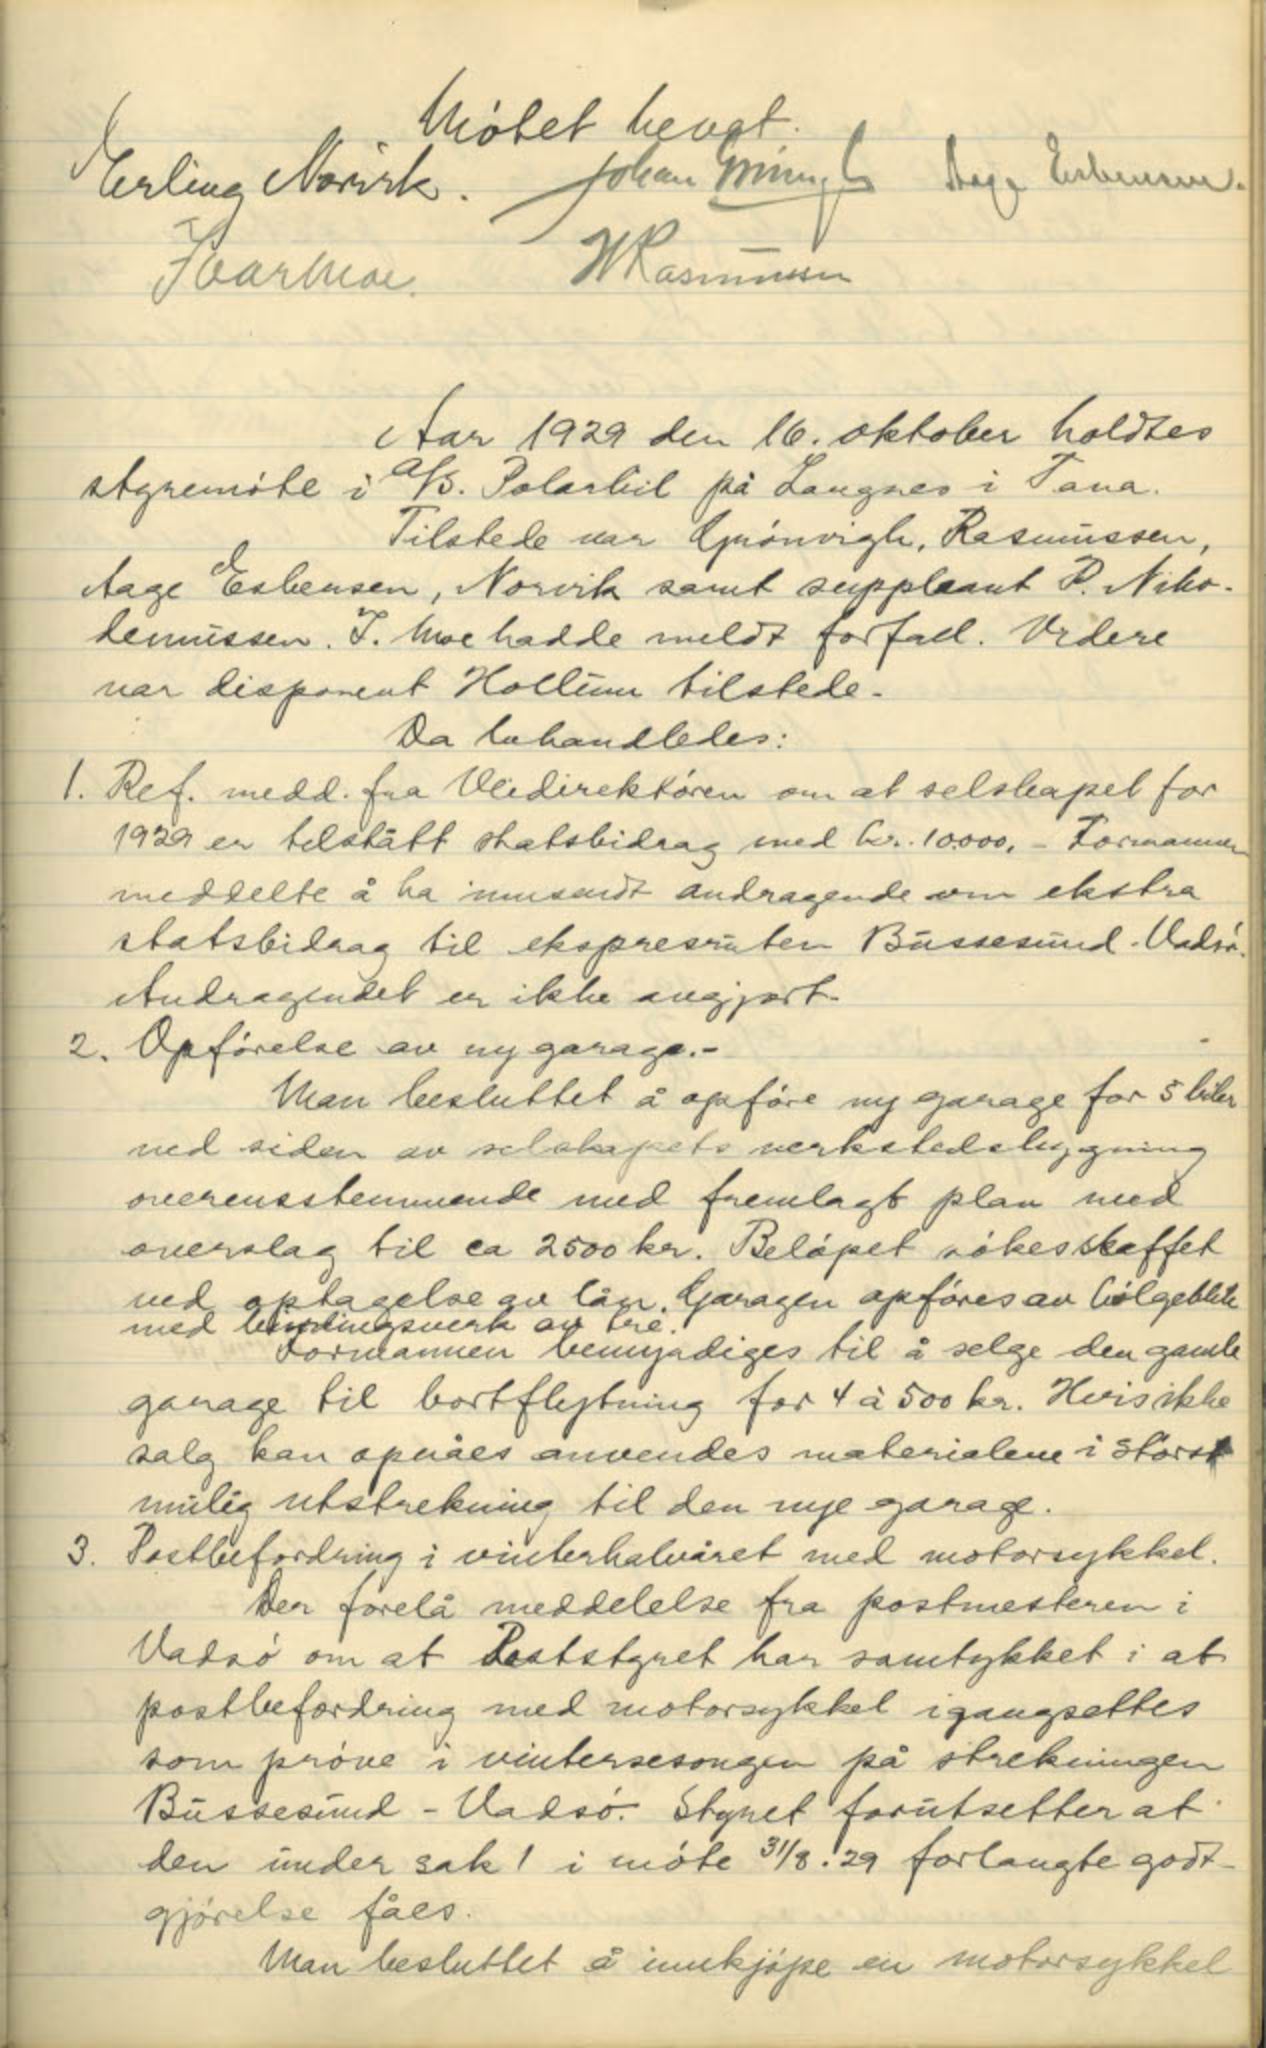 Møtet hevet.
Erling Norvik. Johan Grønvigh Aage Esbensen.
Ivar Moe. H Rasmussen
Aar 1929 den 16. oktober holdtes
styremøte i A/S. Polarbil på Langnes i Tana.
Tilstede var Grønvigh, Rasmussen,
Aage Esbensen, Norvik samt suppleant P. Niko-
demussen. I. Moe hadde meldt forfall. Videre
var disponent Hollum tilstede.
Da behandledes:
1. Ref. medd. fra Veidirektøren om at selskapet for
1929 er tilstått statsbidrag med kr. 10.000,- Formannen
meddelte å ha innsendt andragende om ekstra
statsbidrag til ekspresruten Bussesund-Vadsø.
Andragendet er ikke avgjort.
2. Opførelse av ny garage.-
Man besluttet å opføre ny garage for 5 biler
ved siden av selskapets verkstedsbygning
overensstemmende med fremlagt plan med
overslag til ca 2500 kr. Beløpet søkes skaffet
ved optagelse av lån. Garagen opføres av bølgeblikk
med bindingsverk av tre.
Formannen bemyndiges til å selge den gamle
garage til bortflytning for 4 à 500 kr. Hvis ikke
salg kan opnåes anvendes materialene i størst
mulig utstrekning til den nye garage.
3. Postbefordring i vinterhalvåret med motorsykkel.
Der forelå meddelelse fra postmesteren i
Vadsø om at Poststyret har samtykket i at
postbefordring med motorsykkel igangsettes
som prøve i vintersesongen på strekningen
Bussesund - Vadsø. Styret forutsetter at
den under sak 1 i møte 31/8.29 forlangte godt-
gjørelse fåes.
Man besluttet å innkjøpe en motorsykkel